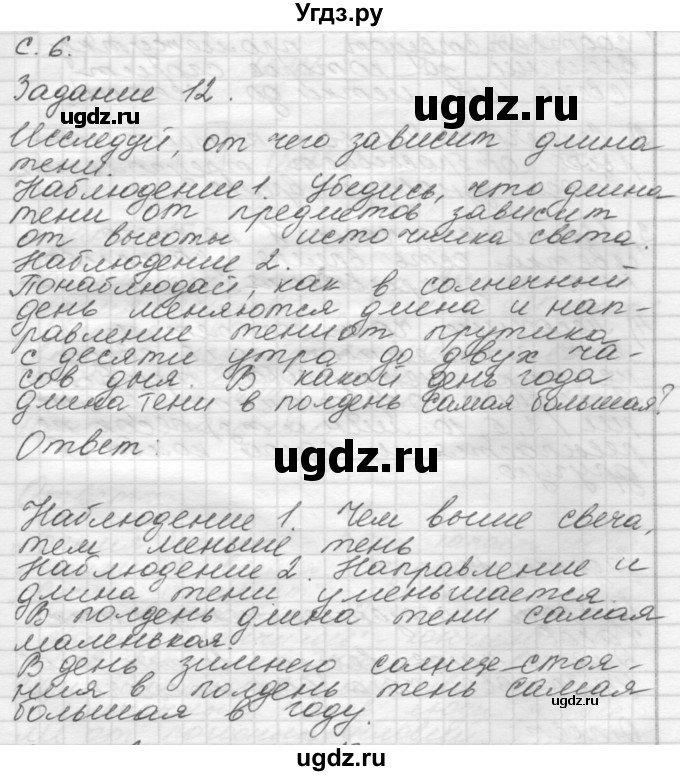 Угдз.ру
с. 6.
Задание 12.
ugdz.ru
ugdz.ru
Исследуй, от чего зависит длина
тени.
Наблюдение 1. Убедись, что длина
тени от предметов зависит
от высоты источника света.
Наблюдение 2.
Понаблюдай, как в солнечный
день меняются длина и нап-
равление тени от прутика
с десяти утра до двух ча-
сов дня. В какой день года
длина тени в полдень самая большая?
Ответ:
ugdz.ru
Наблюдение 1. Чем выше свеча,
тем меньше тень
Наблюдение 2. Направление и
длина тени уменьшается.
В полдень длина тени самая
маленькая.
В день зимнего солнце-стоя-
ния в полдень тень самая
большая в году.
ugdz.ru
ugdz.ru